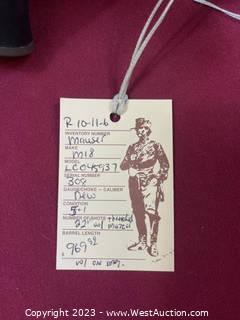 R 10-11-6
INVENTORY NUMBER
Mauser
MAKE
M18
MODEL
LCC045937
SERIAL NUMBER
308
GAUGE/CHOKE - CALIBER
New
CONDITION
5+1
NUMBER OF SHOTS
22" w/ threaded muzzle
BARREL LENGTH
$ 969 92
w/
Copyright 2023 - www.WestAuction.com